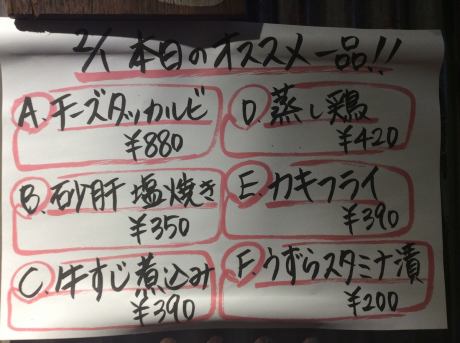 2/1 本日のオススメ一品!!
A. チーズタッカルビ
¥880
B. 砂肝 塩焼き
¥350
C. 牛すじ煮込み
¥390
D. 蒸し鶏
¥420
E. カキフライ
¥390
F. うずらスタミナ漬
¥200